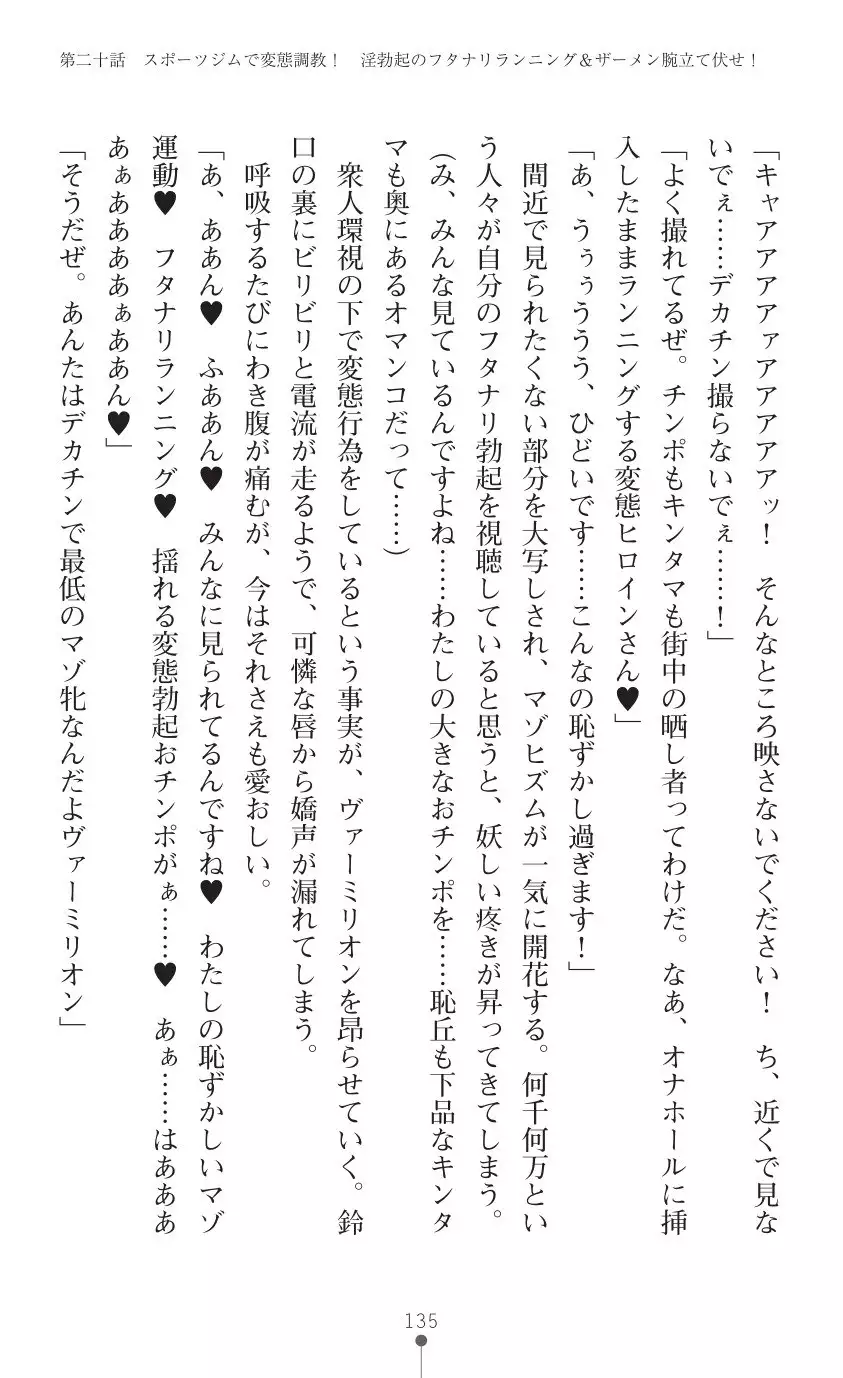 第二十話　スポーツジムで変態調教！　淫勃起のフタナリランニング＆ザーメン腕立て伏せ！
「キャアアアアァアアアアアッ！　そんなところ映さないでください！　ち、近くで見な
いでぇ……デカチン撮らないでぇ……！」
「よく撮れてるぜ。チンポもキンタマも街中の晒し者ってわけだ。なあ、オナホールに挿
入したままランニングする変態ヒロインさん♥」
「あ、うぅぅううう、ひどいです……こんなの恥ずかし過ぎます！」
　間近で見られたくない部分を大写しされ、マゾヒズムが一気に開花する。何千何万とい
う人々が自分のフタナリ勃起を視聴していると思うと、妖しい疼きが昇ってきてしまう。
（み、みんな見ているんですよね……わたしの大きなおチンポを……恥丘も下品なキンタ
マも奥にあるオマンコだって……）
　衆人環視の下で変態行為をしているという事実が、ヴァーミリオンを昂らせていく。鈴
口の裏にビリビリと電流が走るようで、可憐な唇から嬌声が漏れてしまう。
　呼吸するたびにわき腹が痛むが、今はそれさえも愛おしい。
「あ、ああん♥　ふああん♥　みんなに見られてるんですね♥　わたしの恥ずかしいマゾ
運動♥　フタナリランニング♥　揺れる変態勃起おチンポがぁ……♥　あぁ……はあああ
あぁああああぁああん♥」
「そうだぜ。あんたはデカチンで最低のマゾ牝なんだよヴァーミリオン」
135